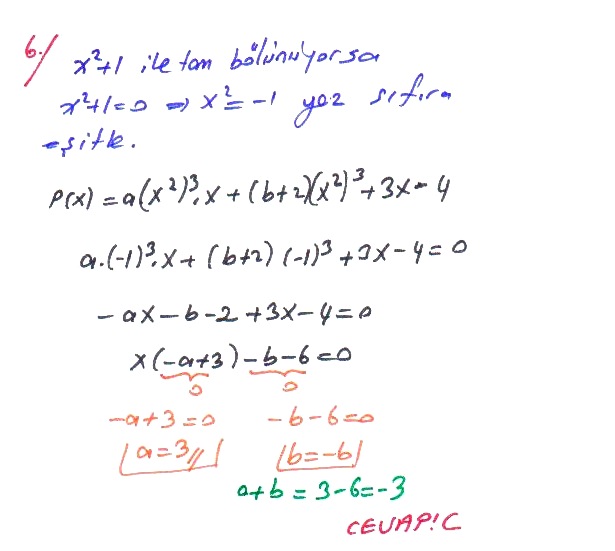 6./ x²+1 ile tam bölünüyorsa
x²+1=0 ⇒ x²=-1 yaz sıfıra
eşitle.
P(x) = a(x²)³.x + (b+2)(x²)³+3x-4
a.(-1)³.x + (b+2)(-1)³+3x-4=0
-ax-b-2+3x-4=0
x(-a+3)-b-6=0
0 0
-a+3=0 -b-6=0
a=3// b=-6
a+b = 3-6=-3
CEVAP:C